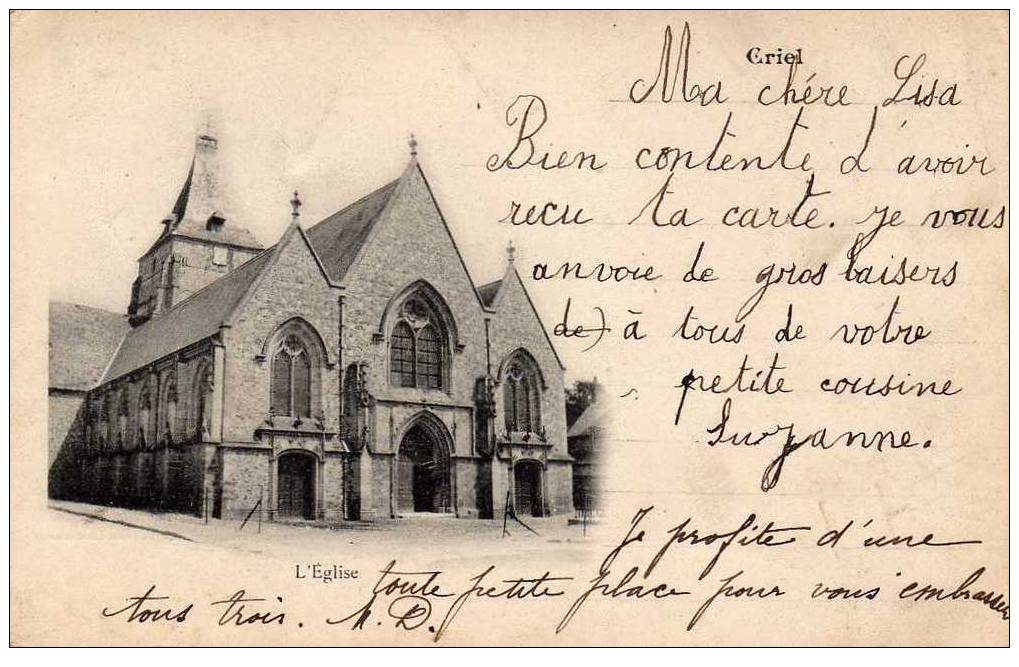 Criel
Ma chére Lisa
Bien contente d'avoir
recu ta carte. je vous
anvoie de gros baisers
de) à tous de votre
petite cousine
Suzanne.
Je profite d'une
L'Église
toute petite place pour vous embrasser
tous trois. M. D.